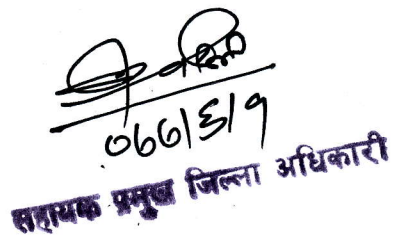 ०७७।६।१
सहायक प्रमुख जिल्ला अधिकारी